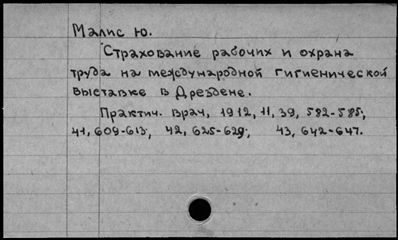 Малис Ю.
Страхование рабочих и охрана
труда на международной гигиенической
выставке в Дрездене.
Практич. врач, 1912, 11, 39, 582-585,
41, 609-613, 42, 625-629, 43, 642-647.